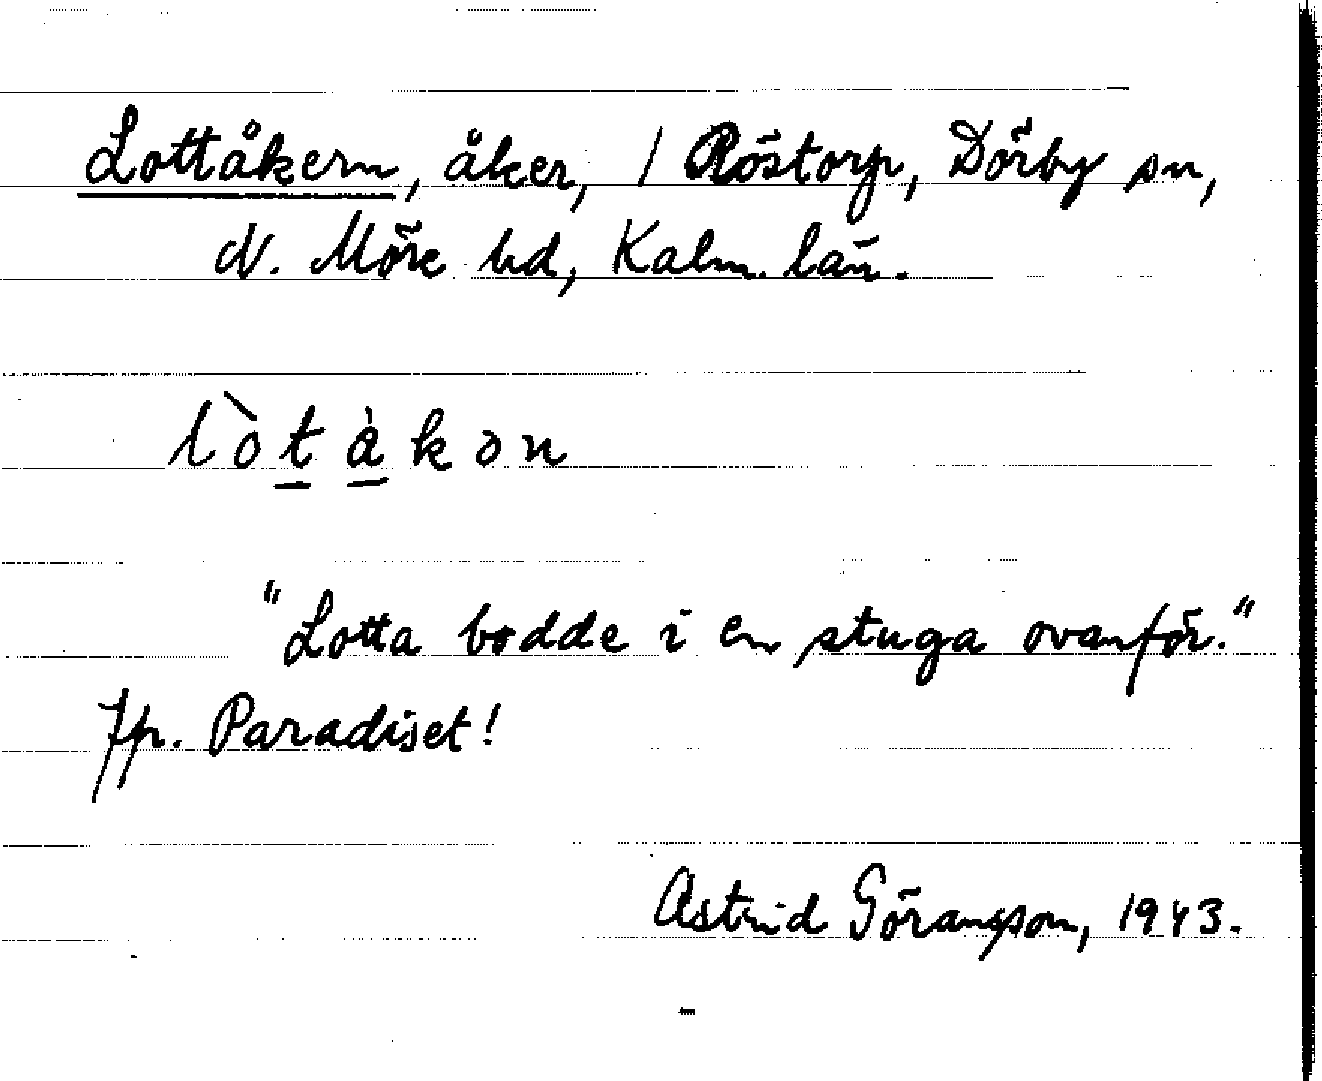 Lottåkern, åker, / Röstorp, Dörby sn,
N. Möre hd, Kalm. län.
lòtàkən
"Lotta bodde i en stuga ovanför."
Jfr. Paradiset!
Astrid Göransson, 1943.